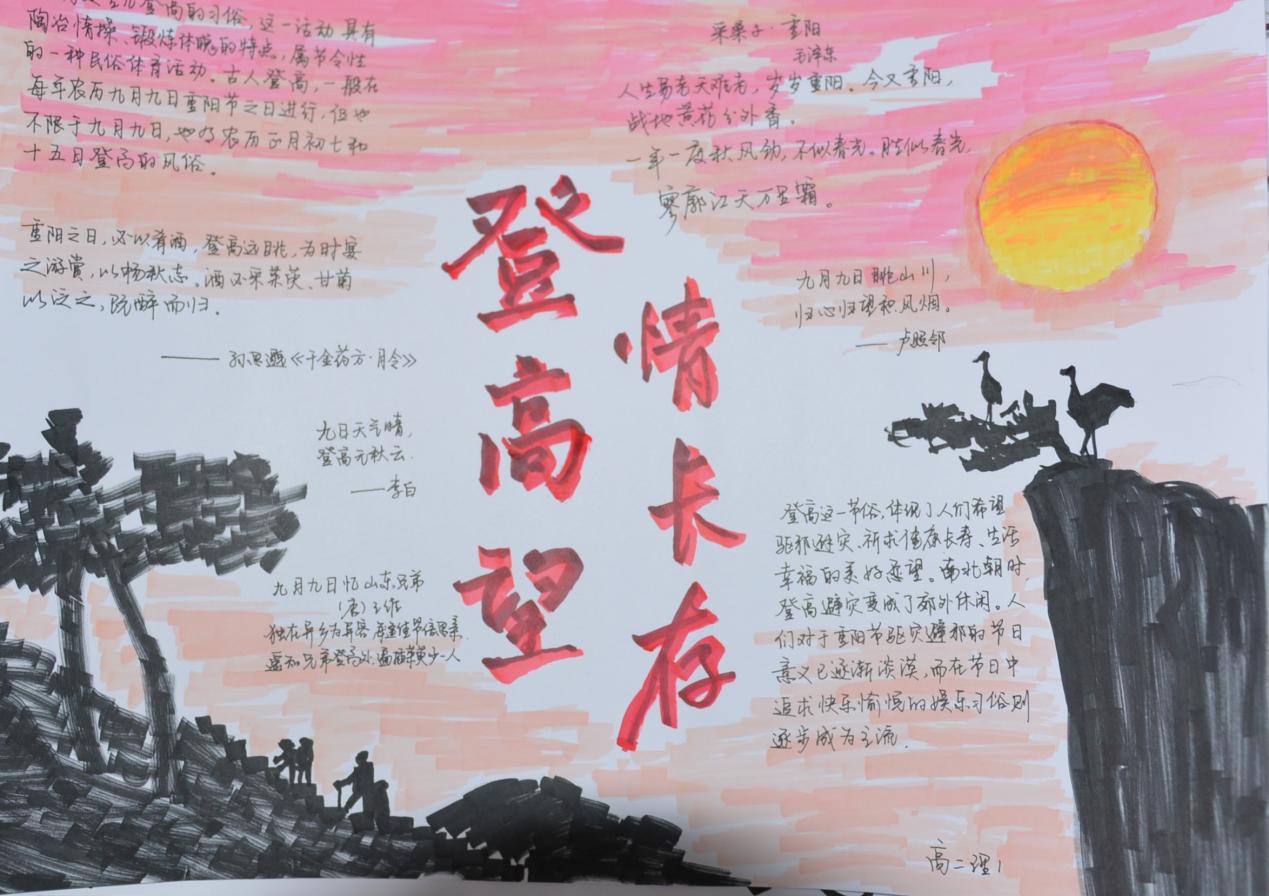 登高的习俗,这一活动具有
陶冶情操、锻炼体魄的特点,属节令性
的一种民俗体育活动。古人登高,一般在
每年农历九月九日重阳节之日进行,但也
不限于九月九日,也有农历正月初七和
十五日登高的风俗。
重阳之日,必以肴酒,登高远眺,为时宴
之游赏,以畅秋志。酒必采茱萸、甘菊
以泛之,既醉而归。
——孙思邈《千金药方·月令》
九日天气晴,
登高无秋云.
——李白
九月九日忆山东兄弟
(唐)王维
独在异乡为异客 每逢佳节倍思亲.
遥知兄弟登高处,遍插茱萸少一人
登高望
情长存
采桑子·重阳
毛泽东
人生易老天难老,岁岁重阳。今又重阳,
战地黄花分外香。
一年一度秋风劲,不似春光。胜似春光,
寥廓江天万里霜。
九月九日眺山川,
归心归望积风烟。
——卢照邻
登高这一节俗,体现了人们希望
驱邪避灾、祈求健康长寿、生活
幸福的美好愿望。南北朝时
登高避灾变成了郊外休闲。人
们对于重阳节驱灾避邪的节日
意义已逐渐淡漠,而在节日中
追求快乐愉悦的娱乐习俗则
逐步成为主流.
高二理1